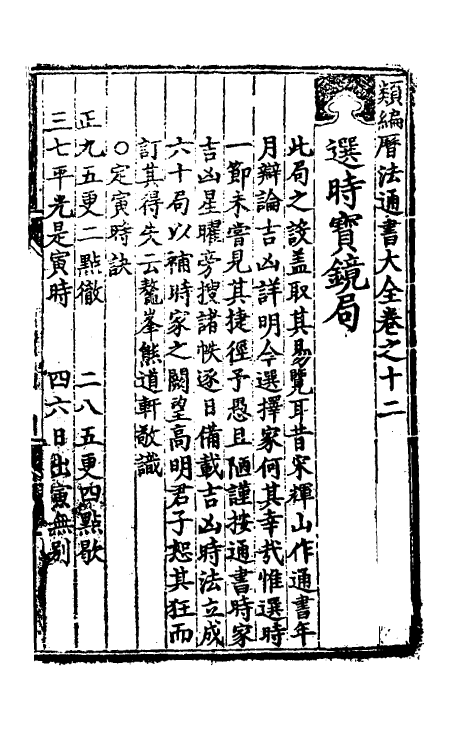 類編曆法通書大全卷之十二
選時寶鏡局
此局之設盖取其易覽耳昔宋輝山作通書年
月辯論吉凶詳明今選擇家何其幸哉惟選時
一節未嘗見其捷徑予愚且陋謹按通書時家
吉凶星曜旁搜諸帙逐日備載吉凶時法立成
六十局以補時家之闕望高明君子恕其狂而
訂其得失云鰲峯熊道軒敬識
○定寅時訣
正九五更二點徹　二八五更四點歇
三七平光是寅時　四六日出寅無別